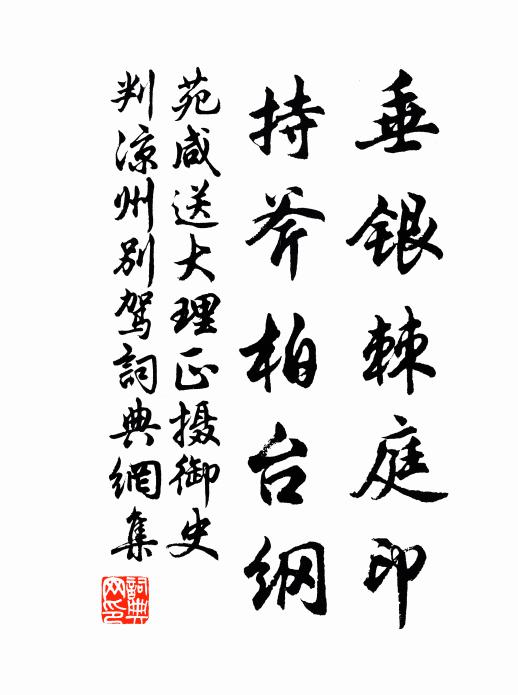 垂银棘庭印
持斧柏台纲
苑咸送大理正摄御史
判凉州别驾詞典網集
詞典網印